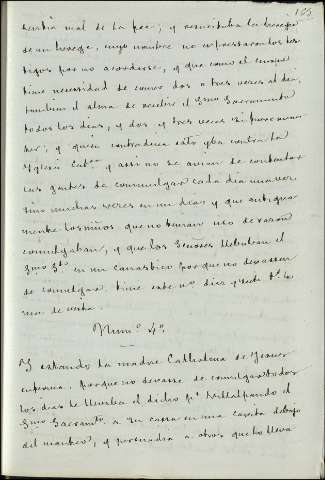 103
sentia mal de la fee; y resucitaba la heregia
de un herege, cuyo nombre no expresaron los tes-
tigos por no acordarse, y que como el cuerpo
tiene necesidad de comer dos o tres veces al dia,
tambien el alma de recibir el Smo Sacramento
todos los dias, y dos, y tres veces si fuere menes-
ter; y quien contradecia esto yba contra la
Yglesia Cata. y assi no se avian de contentar
las gentes de comulgar cada dia una vez,
sino muchas veces en un dia; y que antigua-
mente los niños que no tenian uso de razon
comulgaban, y que los Señores llebaban el
Smo Sto. en un Canastico porque no dexassen
de comulgar. tiene este no diez y siete tos. la
mas de vista.
Numo. 4o.
Y estando la madre Cathalina de Jesus
enferma, porque no dexasse de comulgar todos
los dias le llevaba el dicho pe. Villalpando el
Smo Sacramto. a su cassa en una caxita debajo
del manteo, y persuadia a otros que lo lleva